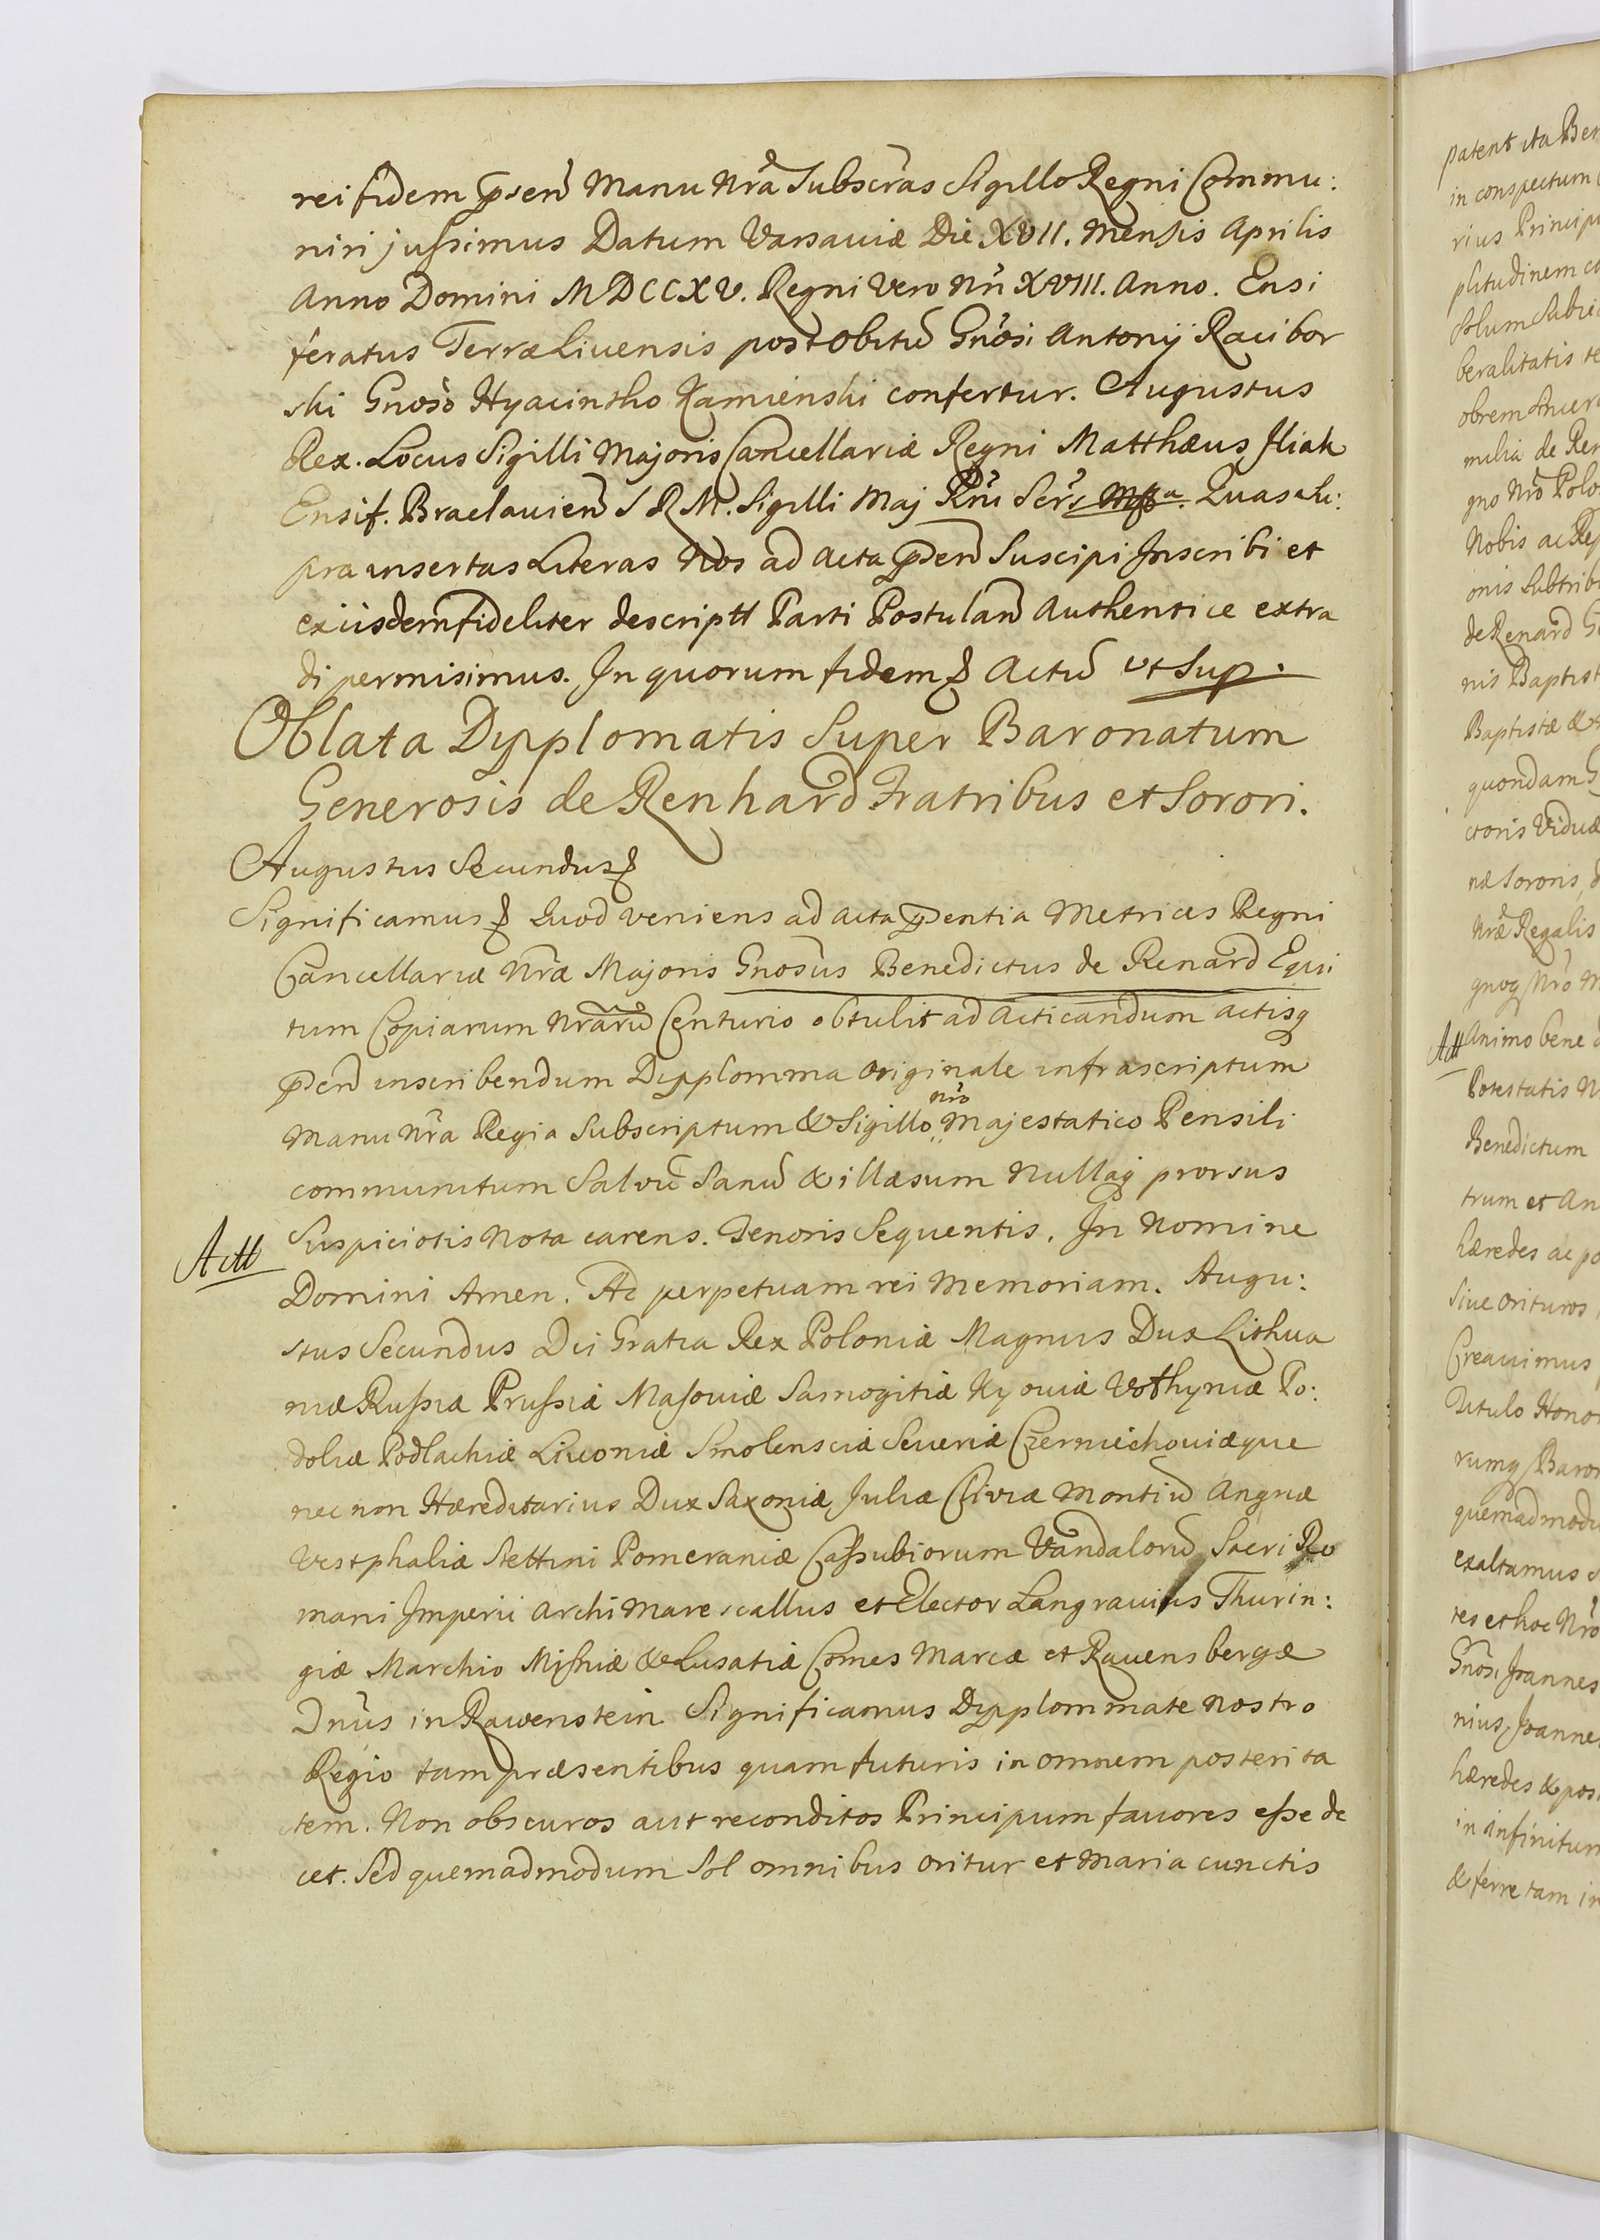 rei fidem pŝen̄ Manu Nrã Subscrãs Sigillo Regni Commu:
niri jussimus Datum Varsaviæ Die XVII. Mensis Aprilis
Anno Domini MDCCXV. Regni Vero Nrĩ XVIII. Anno. Ensi
feratus Terræ Livensis post obitũ Gnõsi Antonij Racibor
ski Gnosõ Hyacintho Kamienski confertur. Augustus
Rex. Locus Sigilli Majoris Cancellariæ Regni Matthæus Iliak
Ensif. Braclavien̄ S R M. Sigilli Maj Rnĩ Secrs̃ Mppa. Quas su:
pra insertas Literas Nos ad Acta pŝen̄ Suscipi Inscribi et
exiisdem fideliter descriptt Parti Postulan̄ Authentice extra
di permisimus. In quorum fidem & Actũ ut Sup.
Oblata Dypplomatis Super Baronatum
Generosis de Renhard Fratribus et Sorori.
Augustus Secundus &
Significamus & Quod veniens ad acta pŝentia Metrices Regni
Cancellariæ Nræ Majoris Gnosus Benedictus de Renard Equi
tum Copiarum Nrarũ Centurio obtulit ad Acticandum actisq
pŝen̄ inscribendum Dypplomma Originale infrascriptum
Manu Nrã Regia Subscriptum & Sigillo Nrõ Majestatico Pensili
communitum Salvũ Sanũ & illæsum Nullaq prorsus
Suspiciotis Nota carens. Tenoris Sequentis. In Nomine
Actt
Domini Amen. Ad perpetuam rei Memoriam. Augu:
stus Secundus Dei Gratia Rex Poloniæ Magnus Dux Lithua
niæ Russiæ Prussiæ Masoviæ Samogitiæ Kyoviæ Volhyniæ Po:
doliæ Podlachiæ Livoniæ Smolensciæ Severiæ Czerniechoviæque
nec non Hæreditarius Dux Saxoniæ Juliæ Cliviæ Montiũ Angriæ
Westphaliæ Stettini Pomeraniæ Cassubiorum Vandalorũ Sacri Ro
mani Imperii Archi Marescallus et Elector Langravius Thurin:
giæ Marchio Misniæ & Lusatiæ Comes Marcæ et Ravensbergæ
Dnũs in Rawenstein Significamus Dypplommate Nostro
Regio tam præsentibus quam futuris in omnem posterita
tem. Non obscuros aut reconditos Principum favores esse de
cet. Sed quemadmodum Sol omnibus oritur et Maria cunctis
patent ita Ber
in conspectum
rius Princip
plitudinem co
solum Subie
beralitatis te
obrem Sincer
milia de Ren
gno Nrõ Polo
Nobis ac Rep
onis Subtribu
de Renard G
nis Baptist
Baptistæ &
quondam G
ctoris Viduæ
næ Sororis
Nræ Regalis
gnoq Nrõ M
Actt
Animo bene
Potestatis N
Benedictum
trum et An
hæredes ac po
Sive Orituros
Creavimus
Titulo Honor
rumq Baron
quemadmodu
exaltamus
tes et hoc Nrõ
Gnõsi Joannes
nius, Joanne
hæredes & pos
in infinitum
& ferre tam in